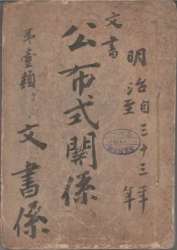 明治自三十三年
至 年
文書
公布式關係
第壹類
文書係